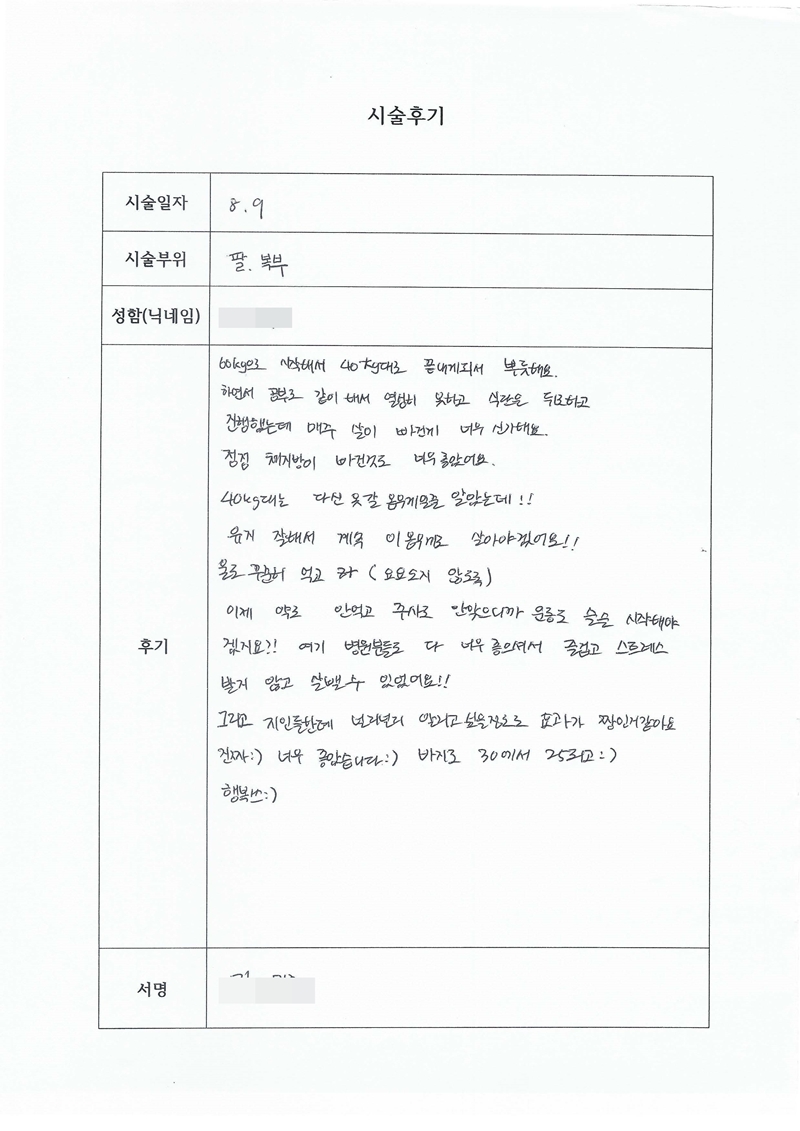 시술후기
시술일자 8.9
시술부위 팔. 복부
성함(닉네임)
후기
60kg으로 시작해서 40kg대로 끝내게되서 뿌듯해요.
하면서 공부도 같이 해서 열심히 못하고 식단은 위주하고
진행했는데 매주 살이 빠진게 너무 신기해요.
점점 체지방이 빠진것도 너무 좋았어요.
40kg대는 다신 못갈 몸무게인줄 알았는데!!
유지 잘해서 계속 이 몸무게로 살아야겠어요!!
물도 꾸준히 먹고 (요요오지 않도록)
이제 약도 안먹고 주사도 안맞으니까 운동도 슬슬 시작해야
겠지요?! 여기 병원분들도 다 너무 좋으셔서 즐겁고 스트레스
받지 않고 살뺄수 있었어요!!
그리고 지인들한테 널리널리 알리고싶을정도로 효과가 짱인거같아요
진짜:) 너무 좋았습니다:) 바지도 30에서 25되고:)
행복쓰:)
서명